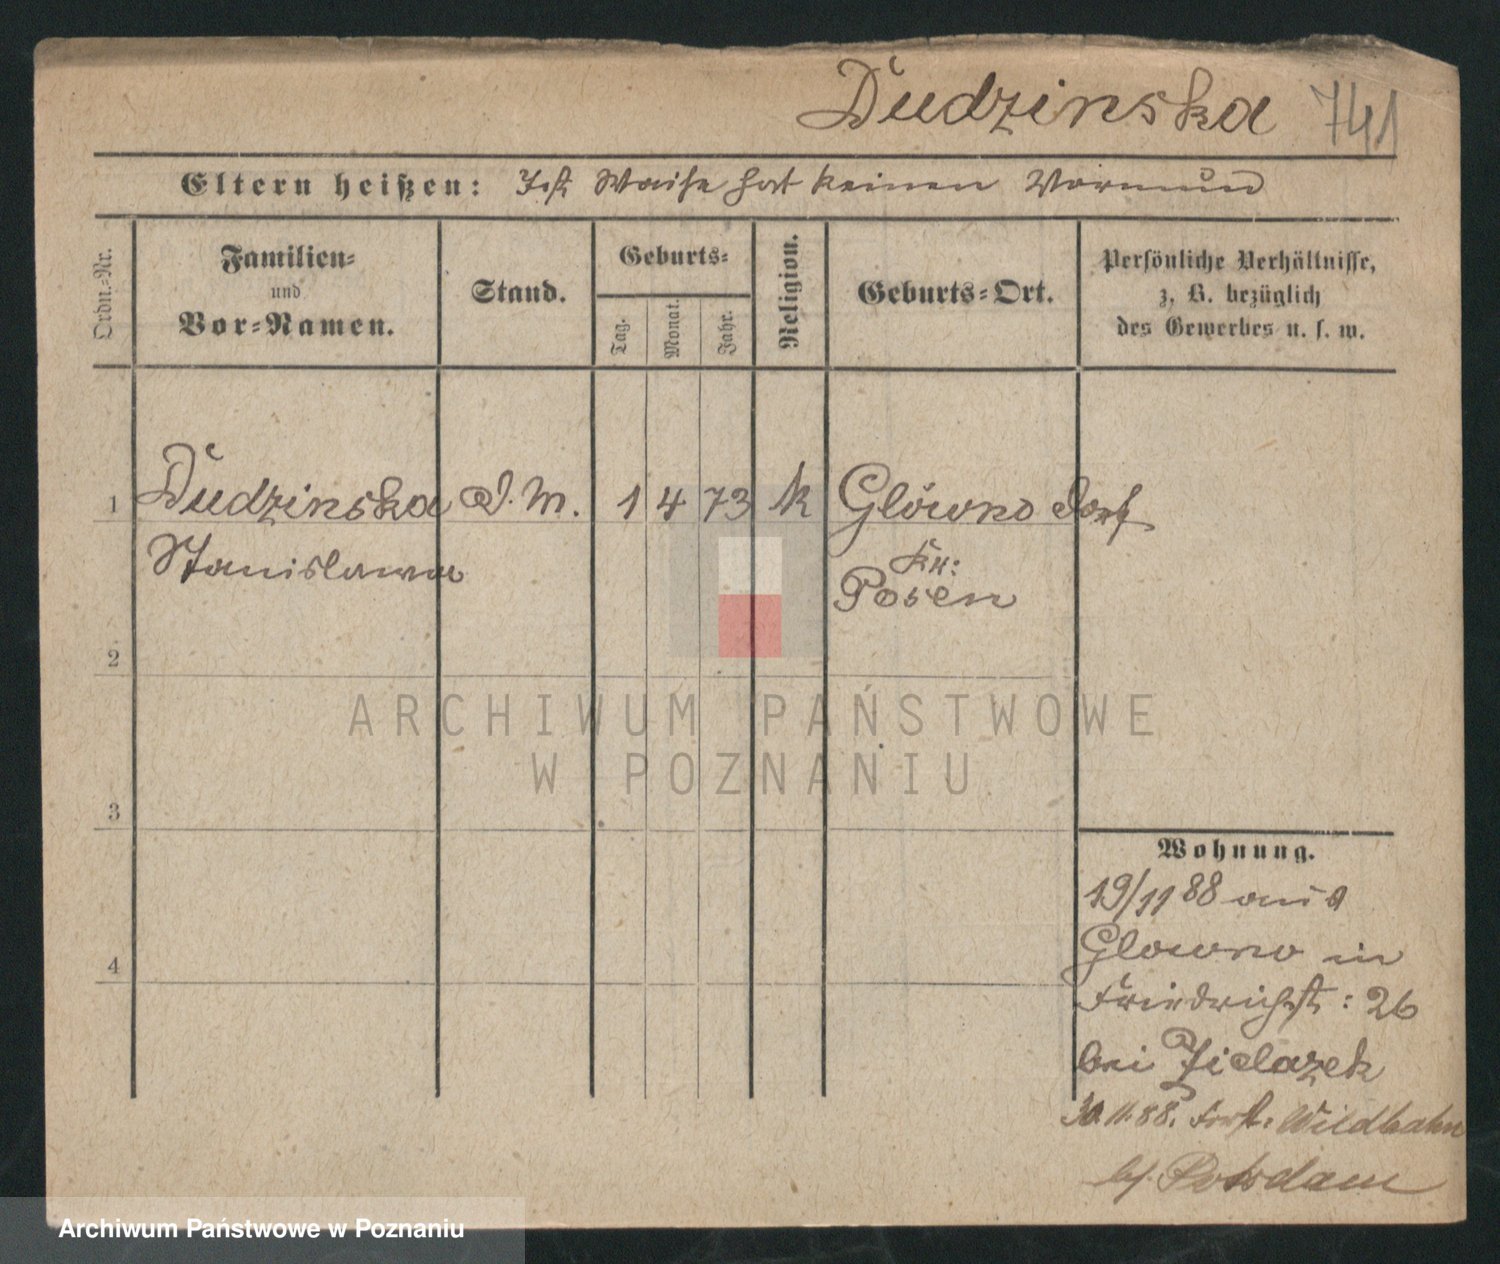 Dudzinska 741
Eltern heißen: Ist Waise hat keinen Vormund
Ordn.-Nr.
Familien-
und
Vor-Namen.
Stand.
Geburts-
Tag.
Monat.
Jahr.
Religion.
Geburts-Ort.
Persönliche Verhältnisse,
z. B. bezüglich
des Gewerbes u. s. w.
1 Dudzinska D. M. 1 4 73 k Glówno Dorf
Stanislawa Kr:
Posen
2
3
4
Wohnung.
19/11 88 aus
Glowno in
Friedrichst: 26
bei Zielazek
30.11.88. Forst: Wildbahn
bei Potsdam
ARCHIWUM PAŃSTWOWE
W POZNANIU
Archiwum Państwowe w Poznaniu